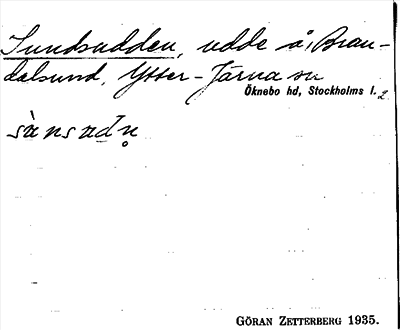 Sundsudden, udde å, Bran-
dalsund, Ytter-Järna sn
Öknebo hd, Stockholms l. 2
sànsadn̥
GÖRAN ZETTERBERG 1935.